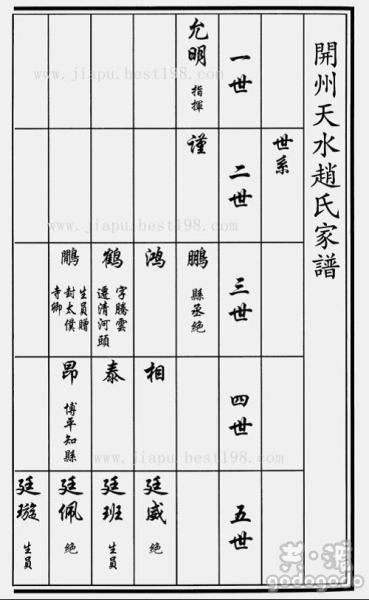 開州天水趙氏家譜
世系
一世
二世
三世
四世
五世
允明 指揮
謹
鵬 縣丞絕
鴻
相
廷威 絕
鶴 字騰雲
遷清河頭
泰
廷班 生員
鵰 生員贈
封太僕
寺卿
昂 博平知縣
廷佩 絕
廷璇 生員
www.jiapu.best198.com
www.jiapu.best198.com
www.jiapu.best198.com
www.jiapu.best198.com
godogodo